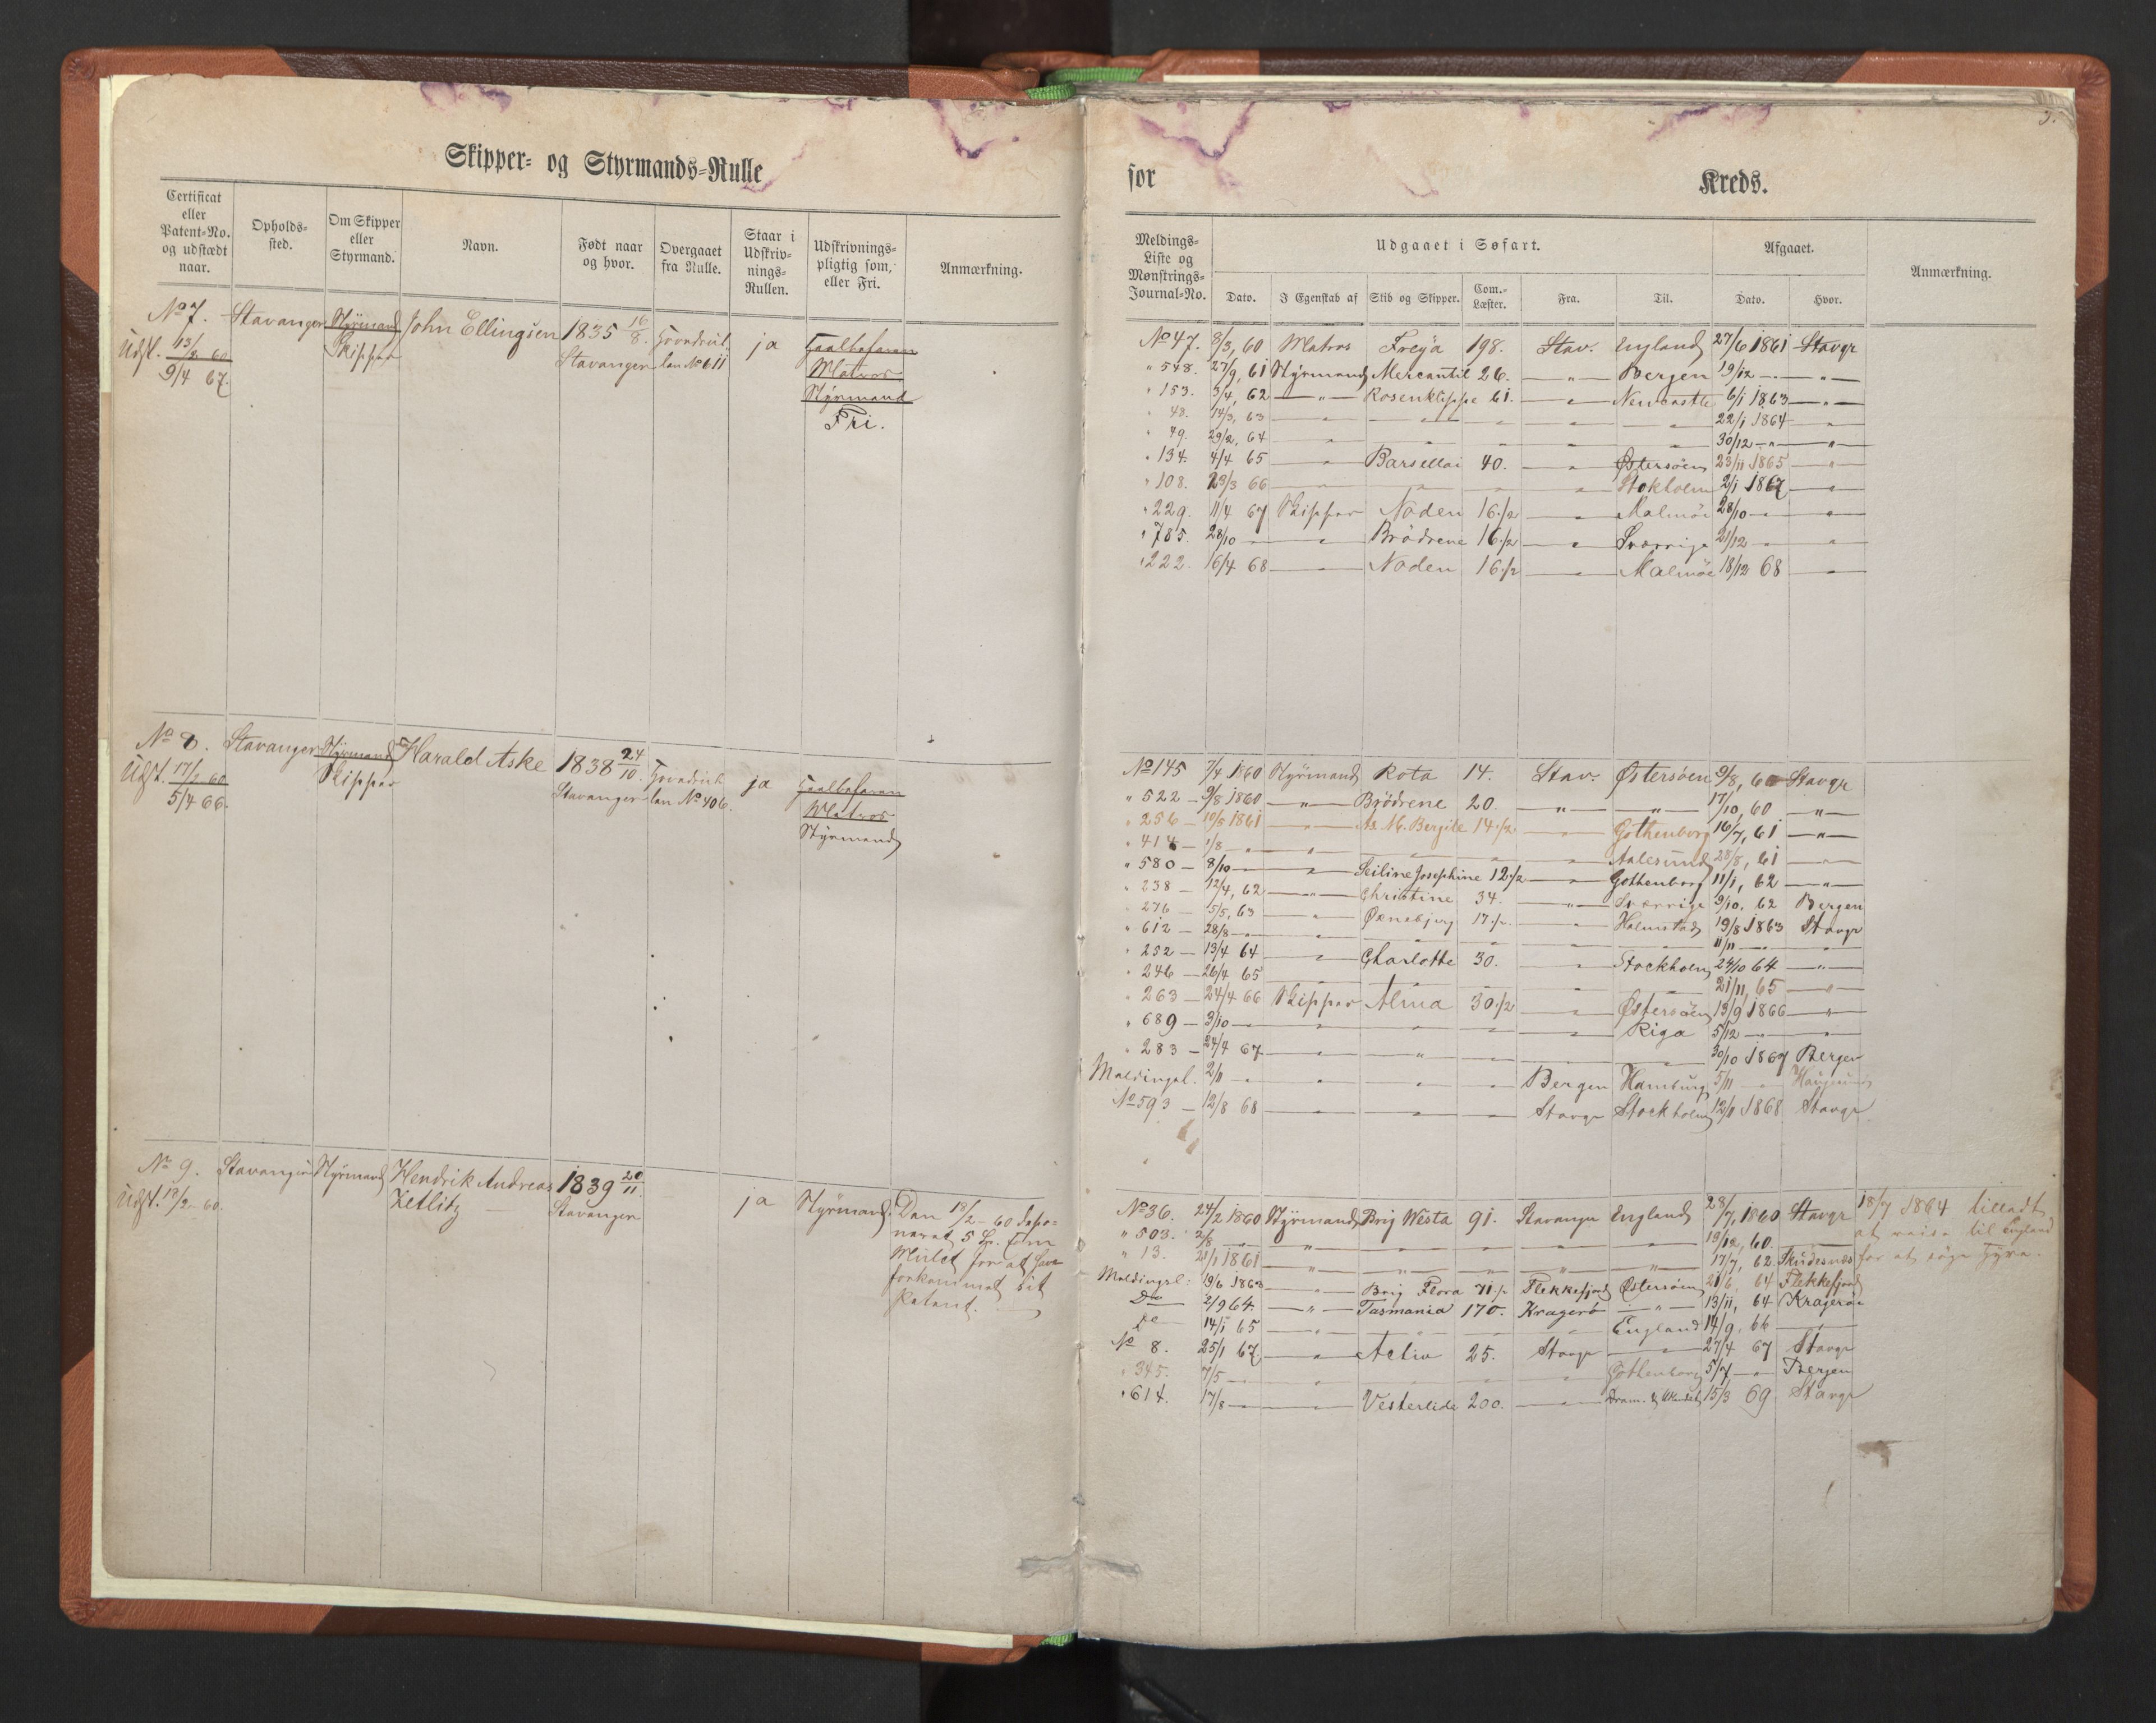 Skipper- og Styrmands-Rulle
Certificat eller Patent-No. og udstædt naar.
Opholds-sted.
Om Skipper eller Styrmand.
Navn.
Født naar og hvor.
Overgaaet fra Rulle.
Staar i Udskriv-nings-Rullen.
Udskrivnings-pligtig som, eller Fri.
Anmærkning.
No 7. Stavanger Styrmand John Ellingsen 1835 16/8. Hovedrul- ja
Udst. 13/2 60 Skipper Stavanger len No 611
9/4 67. Matros
Styrmand
Fri.
No 8. Stavanger Styrmand Harald Aske 1838 24/10. ja
Udst. 17/2 60 Skipper Stavanger len No 406.
5/4 66. Matros
Styrmand
No 9. Stavanger Styrmand Hendrik Andreas 1839 20/11. ja Styrmand. Den 18/2 - 60 depo-
Udst. 18/2 - 60. Zetlitz Stavanger neret 5 som
Mulct for at have
forkommet sit
Patent.
for Kreds.
3.
Meldings-Liste og Mønstrings-Journal-No.
Udgaaet i Søfart.
Dato.
I Egenskab af
Skib og Skipper.
Com.-Læster.
Fra.
Til.
Afgaaet.
Dato.
Hvor.
Anmærkning.
No 47. 8/3, 60 Matros Freya 198. Stav. England 27/6 1861 Stavgr
" 548. 27/9, 61 Styrmand Mercantil 26. " Bergen 19/12 - " "
" 153. 3/4, 62 " Rosenklippe 61. " Newcastle 6/1 1863 "
" 48. 14/3, 63 " " " " " 22/1 1864 "
" 49. 29/2, 64 " " " " " 30/12 " "
" 134. 4/4 65 " 40. " Østersøen 23/11 1865 "
" 108. 23/3 66 " " " " Stokholm 2/1 1867 "
" 229. 11/4 67 Skipper Noden 16 1/2 " Malmöe 28/10 " "
" 785. 28/10 " " Brödrene 16 1/2 " Sverrige 21/12 " "
" 222. 16/4 68 " Noden 16 1/2 " Malmöe 18/12 68 "
No 145 7/4 1860 Styrmand Rota 14. Stav. Østersøen 9/8, 60 Stavgr
" 522 - 9/8 1860 " Brödrene 20. " " 17/10, 60 "
" 256 - 10/5 1861 " A. M. Bergite 14 1/2 " Gothenborg 16/7, 61 "
" 414 - 1/8 " " " " " Aalesund 28/8, 61 "
" 580 - 8/10 " " Seiline Josephine 12 1/2 " Gothenborg 11/1, 62 "
" 238 - 12/4, 62 " Christine 34. " Sverrige 9/10, 62 Bergen
" 276 - 5/5, 63 " 17 1/2 " Halmstad 19/8 1863 Stavgr
" 612 - 28/8 " " " " " " 11/11 " "
" 252 - 13/4 64 " Charlotte 30. " Stockholm 24/10 64 "
" 246 - 26/4 65 " " " " " 21/11, 65 "
" 263 - 24/4 66 Skipper Alma 30 1/2 " Østersøen 13/9 1866 "
" 689 - 3/10 " " " " " Riga 5/12 " "
" 283 - 24/4 67 " " " " " 30/10 1867 Bergen
Meldingsl. 2/11 " " " " Bergen Hamburg 5/11 "
No 593 - 12/8 68 " " " Stavgr Stockholm 12/11 1868 Stavgr
No 36. 24/2 1860 Styrmand Brig Westa 91. Stavanger England 28/7, 1860 Stavgr 18/7 1864 tilladt
" 503. 2/8 " " " " " " 19/12, 60. " at reise til England
" 13. 21/1 1861 " " " " " 17/7, 62. Skudesnæs for at søge Hyre.
Meldingsl: 19/6 1863 " Brig Flora 71 1/2 Flekkefjord Østersøen 21/6 64 Flekkefjord
Do 2/9 64. " Tasmania 170. Kragerö " 13/11, 64 Krageröe
Do 14/1 65 " " " " England 14/9, 66 "
No 8. 25/1 67. " Activ 25. Stavgr " 27/4 67 Stavgr
" 345. 7/5 " " " " " Gothenborg 5/7 " Bergen
" 614. 17/8 " " Vesterlide 200. " 15/3 69 Stavgr